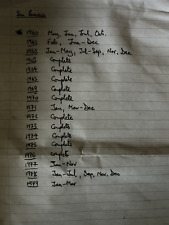 1960 May, Jun, Jul, Oct.
1961 Feb, Jun-Dec
1962 Jan-May, Jul-Sep, Nov, Dec
1963 Complete
1964 Complete
1965 Complete
1968 Complete
1969 Complete
1970 Complete
1971 Jan, Mar-Dec
1972 Complete
1973 Complete
1974 Complete
1975 Complete
1976 Complete
1977 Jan-Nov
1978 Jan-Jul, Sep, Nov, Dec
1979 Jan-Mar